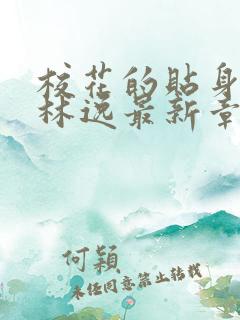 校花的貼身
林逸最新章
何穎
未经同意禁止转载